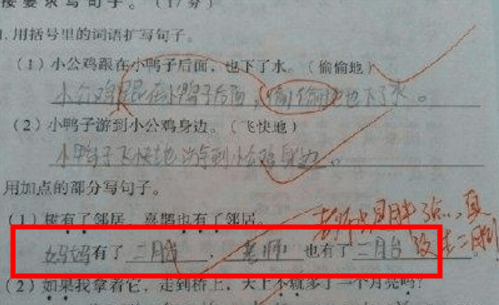 接要求写句子。(17分)
1.用括号里的词语扩写句子。
(1)小公鸡跟在小鸭子后面,也下了水。(偷偷地)
小公鸡跟在小鸭子后面,偷偷地也下了水。
(2)小鸭子游到小公鸡身边。(飞快地)
小鸭子飞快地游到小公鸡身边。
用加点的部分写句子。
(1)树有了邻居,喜鹊也有了邻居。
妈妈有了二月台,老师也有了二月台
没有二月
(2)如果我拿着它,走到桥上,天上不就多了一个月亮吗?